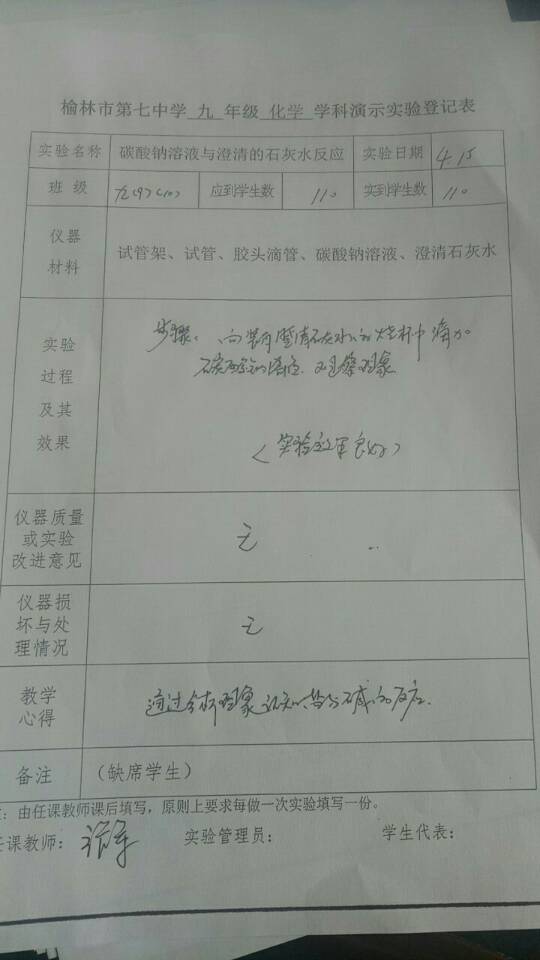 榆林市第七中学 九 年级 化学 学科演示实验登记表
实验名称 碳酸钠溶液与澄清的石灰水反应 实验日期 4.15
班 级 九(9)(10) 应到学生数 110 实到学生数 110
仪器
材料
试管架、试管、胶头滴管、碳酸钠溶液、澄清石灰水
实验
过程
及其
效果
步骤: 向装有澄清石灰水的烧杯中滴加
碳酸钠溶液 观察现象
(实验效果良好)
仪器质量
或实验
改进意见
无
仪器损
坏与处
理情况
无
教学
心得
通过分析现象认知盐与碱的反应.
备注 (缺席学生)
:由任课教师课后填写,原则上要求每做一次实验填写一份。
任课教师: 实验管理员: 学生代表: